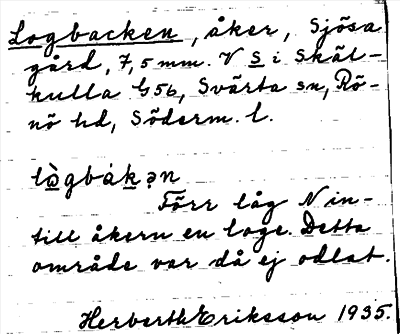 Logbacken, åker, Sjösa
gård, 7,5 mm. V S i Skäl-
kulla G56, Svärta sn, Rö-
nö hd, Söderm. l.
lògbákən
Förr låg N in-
till åkern en loge. Detta
område var då ej odlat.
Herberth Eriksson 1935.